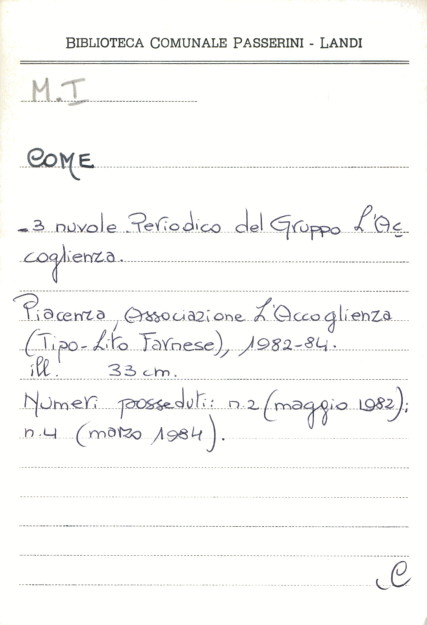 BIBLIOTECA COMUNALE PASSERINI - LANDI
M.I
COME
- 3 nuvole. Periodico del Gruppo L'Ac
coglienza.
Piacenza, Associazione L'Accoglienza
(Tipo-Lito Farnese), 1982-84.
ill. 33 cm.
Numeri posseduti: n.2 (maggio 1982);
n.4 (marzo 1984).
C